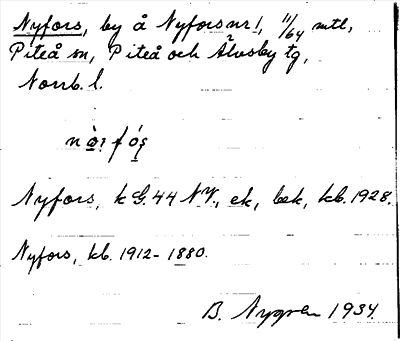 Nyfors, by å Nyfors nr 1, 11/64 mtl,
Piteå sn, Piteå och Älvsby tg,
Norrb. l.
Nyfors, k G. 44 NV., ek, bek, kb. 1928.
Nyfors, kb. 1912-1880.
B. Nygren 1934.